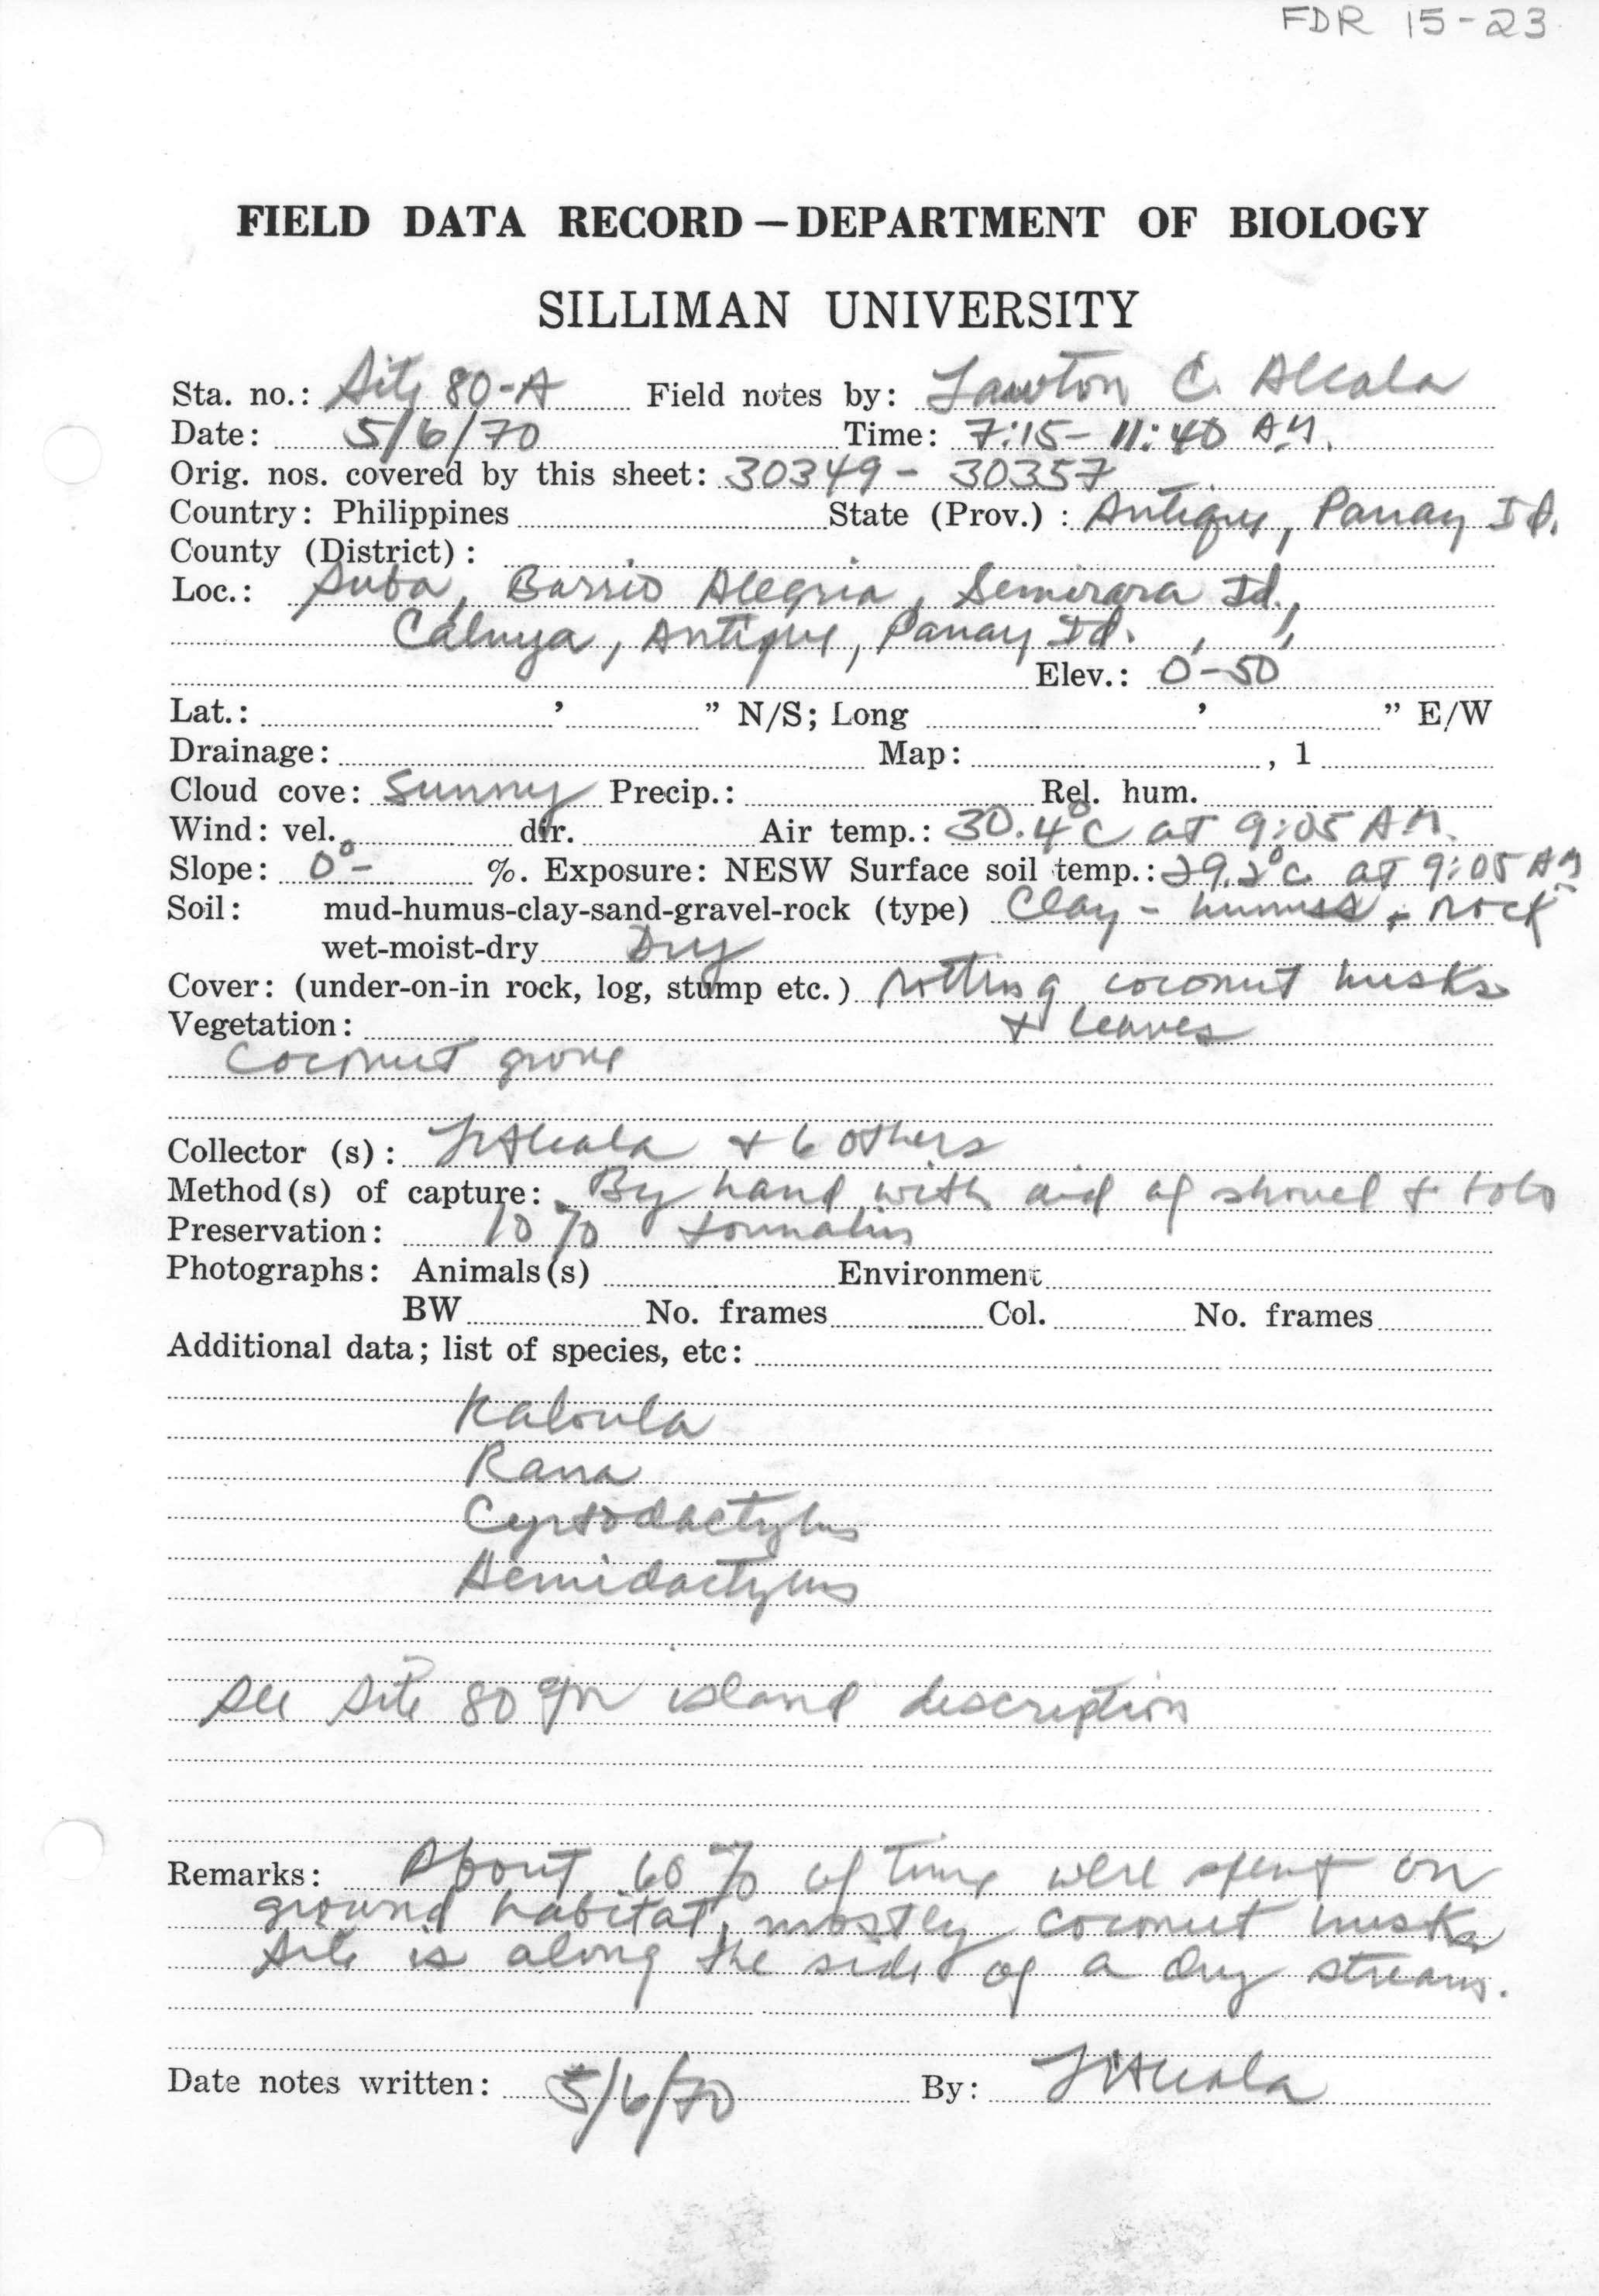 FDR 15-23
FIELD DATA RECORD — DEPARTMENT OF BIOLOGY
SILLIMAN UNIVERSITY
Sta. no.: Site 80-A Field notes by: Lawton C. Alcala
Date: 5/6/70 Time: 7:15 - 11:40 A.M.
Orig. nos. covered by this sheet: 30349 - 30357
Country: Philippines State (Prov.) : Antique, Panay Id.
County (District) :
Loc.: Suba, Barrio Alegria, Semirara Id.,
Caluya, Antique, Panay Id.
Elev.: 0-50
Lat.: ' " N/S; Long ' " E/W
Drainage: Map: , 1
Cloud cove: Sunny Precip.: Rel. hum.
Wind: vel. dir. Air temp.: 30.4°C at 9:05 A.M.
Slope: 0°- %. Exposure: NESW Surface soil temp.: 29.2°C at 9:05 AM
Soil: mud-humus-clay-sand-gravel-rock (type) Clay - humus + rock
wet-moist-dry Dry
Cover: (under-on-in rock, log, stump etc.) rotting coconut husks
Vegetation: + leaves
Coconut grove
Collector (s) : LCAlcala + 6 others
Method(s) of capture: By hand with aid of shovel + bolo
Preservation: 10% formalin
Photographs: Animals(s) Environment
BW No. frames Col. No. frames
Additional data; list of species, etc:
Kaloula
Rana
Cyrtodactylus
Hemidactylus
See Site 80 for island description
Remarks: About 60% of time were spent on
ground habitat, mostly coconut husks
Site is along the side of a dry stream.
Date notes written: 5/6/70 By: LCAlcala